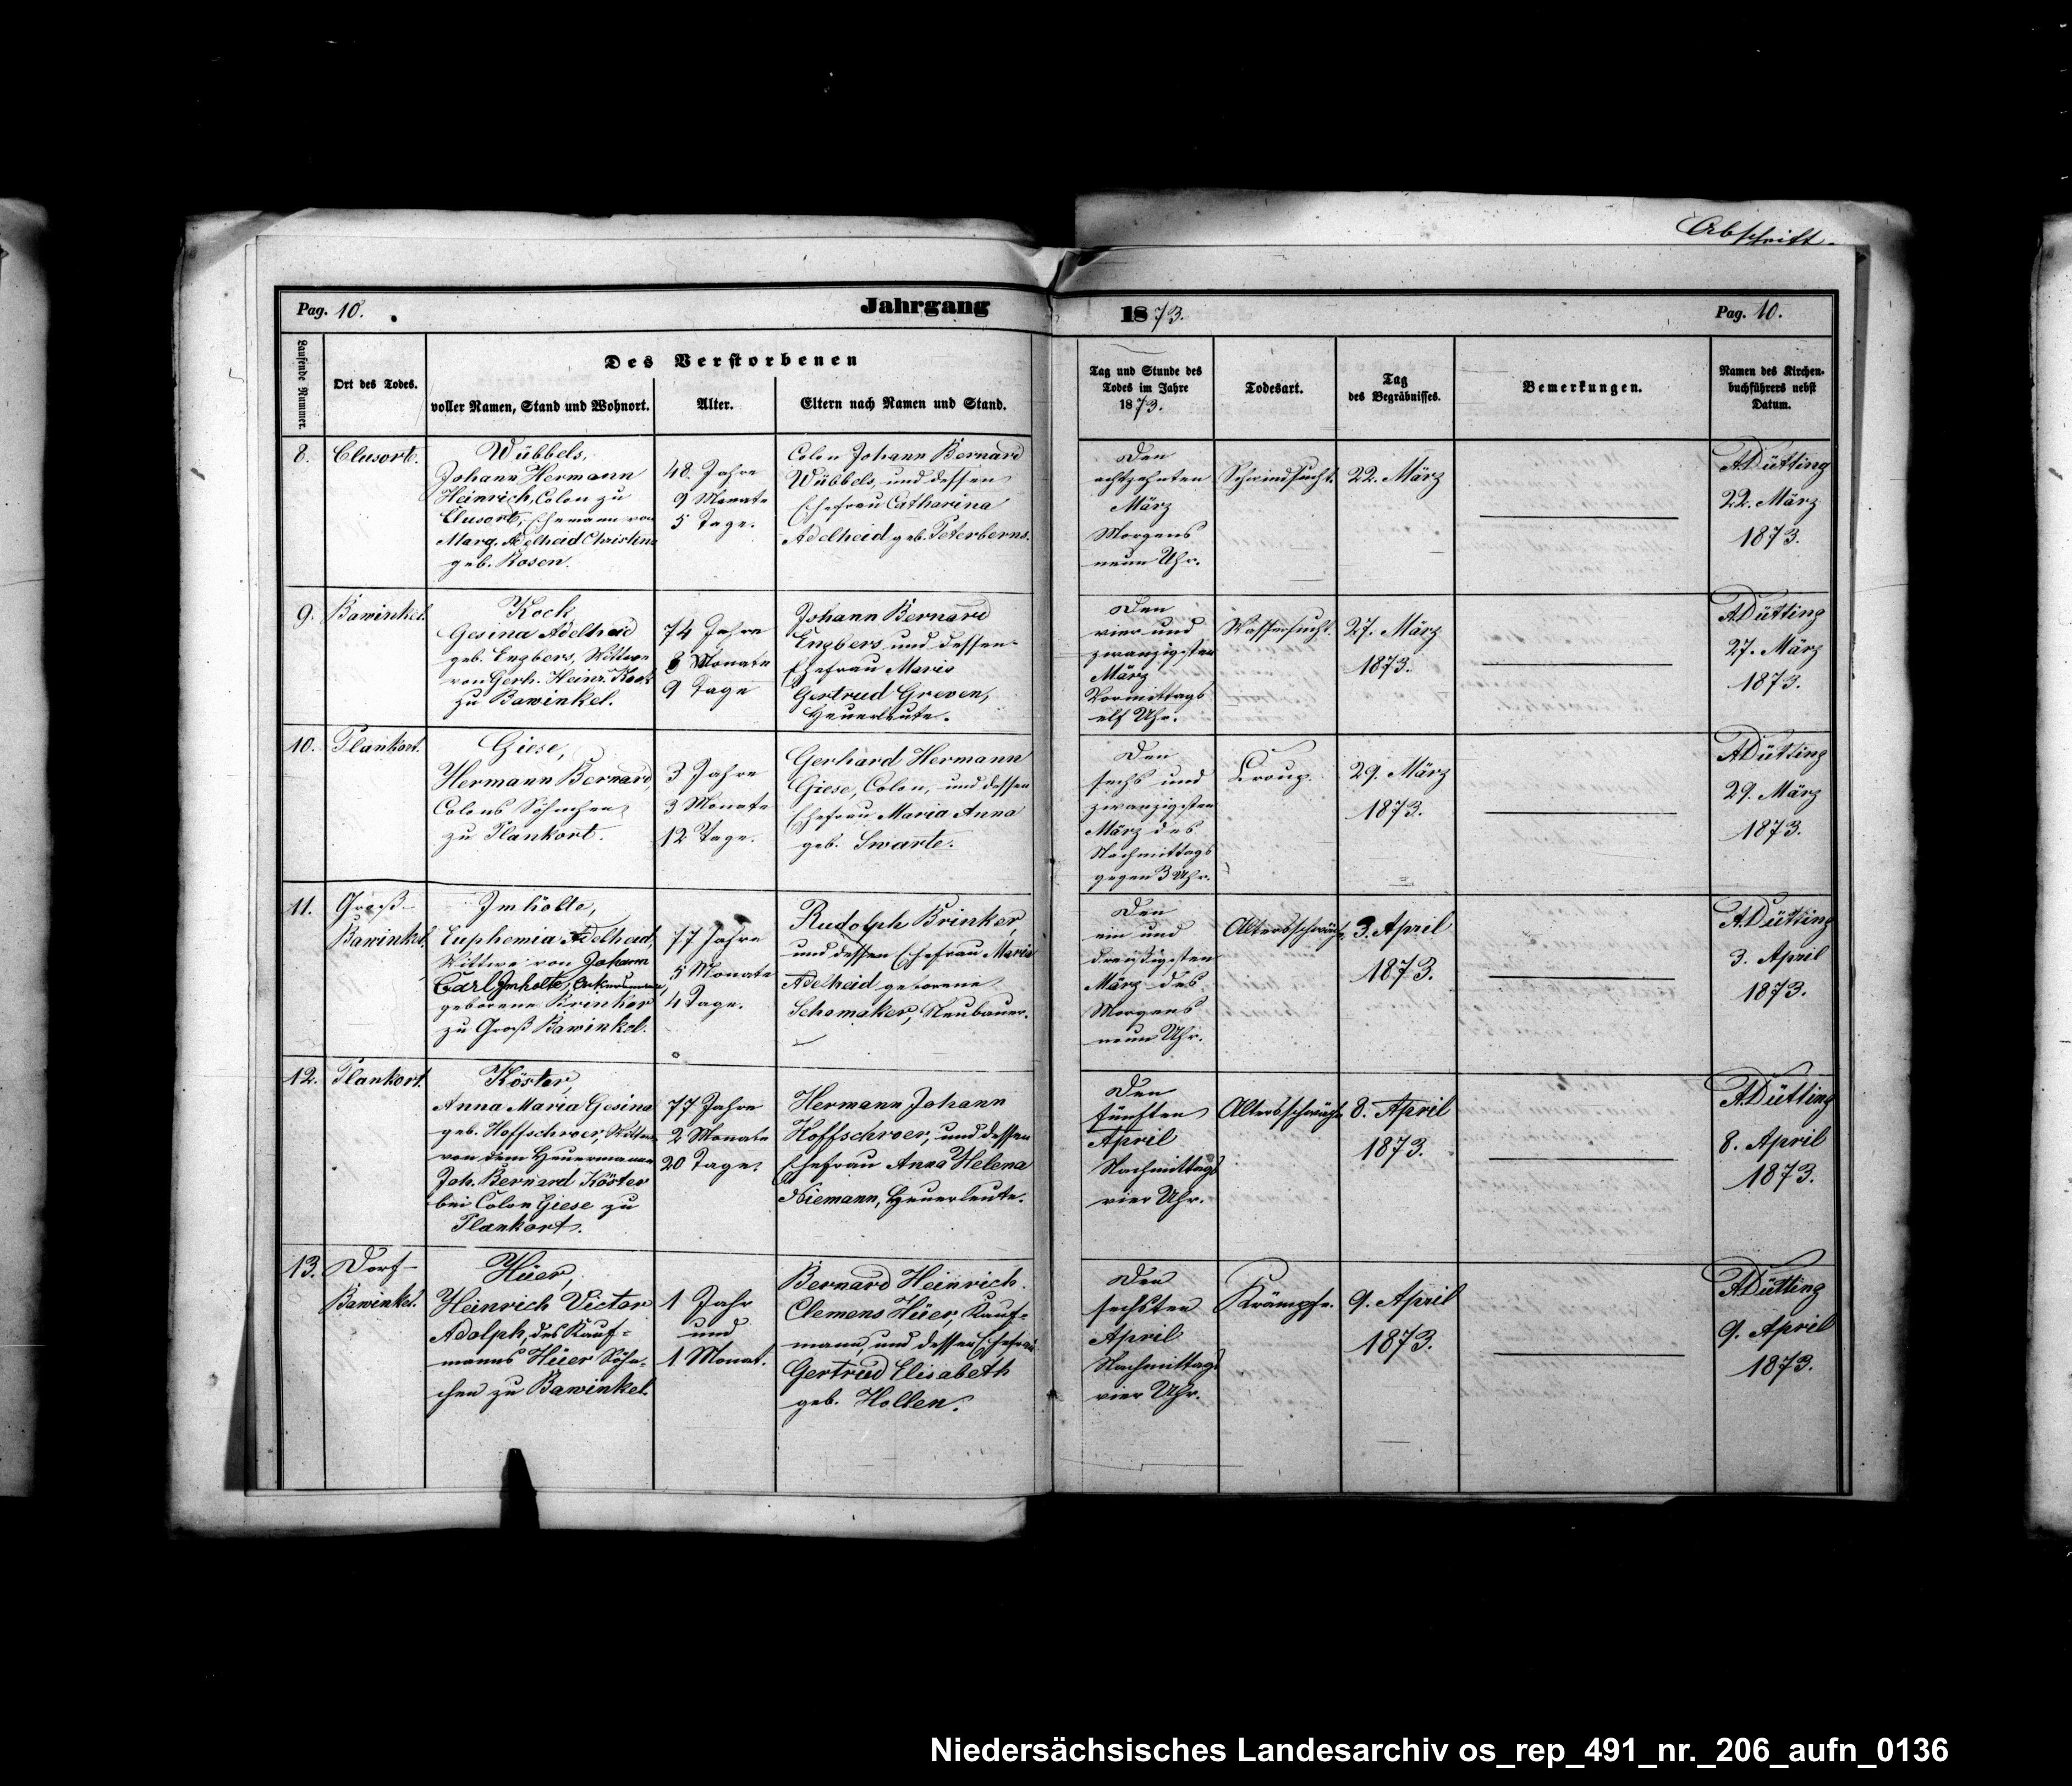 Abschrift.
Pag. 10.
Jahrgang
1873.
Pag. 10.
Laufende Nummer.
Ort des Todes.
Des Verstorbenen
voller Namen, Stand und Wohnort.
Alter.
Eltern nach Namen und Stand.
Tag und Stunde des
Todes im Jahre
1873.
Todesart.
Tag
des Begräbnisses.
Bemerkungen.
Namen des Kirchen-
buchführers nebst
Datum.
8.
Clusort.
Wübbels,
Johann Hermann
Heinrich, Colon zu
Clusort, Ehemann von
Marg. Adelheid Christina
geb. Rosen.
48 Jahre
9 Monate
5 Tage.
Colon Johann Bernard
Wübbels, und dessen
Ehefrau Catharina
Adelheid geb. Peterberns.
Den
achtzehnten
März
Morgens
neun Uhr.
Schwindsucht.
22. März
ADütting
22. März
1873.
9.
Bawinkel.
Kock
Gesina Adelheid
geb. Engbers, Wittwe
von Gerh. Heinr. Kock
zu Bawinkel.
74 Jahre
8 Monate
9 Tage
Johann Bernard
Engbers, und dessen
Ehefrau Maria
Gertrud Greven,
Heuerleute.
Den
vier und
zwanzigsten
März
Vormittags
elf Uhr.
Wassersucht.
27. März
1873.
ADütting
27. März
1873.
10.
Plankort.
Giese,
Hermann Bernard,
Colons Söhnchen
zu Plankort.
3 Jahre
3 Monate
12 Tage.
Gerhard Hermann
Giese, Colon, und dessen
Ehefrau Maria Anna
geb. Swarte.
Den
sechs und
zwanzigsten
März des
Nachmittags
gegen 3 Uhr.
Croup.
29. März
1873.
ADütting
29. März
1873.
11.
Groß-
Bawinkel.
Imholte,
Euphemia Adelheid,
Wittwe von Johann
Carl Imholte, Ackersmann,
geborene Brinker
zu Groß Bawinkel.
77 Jahre
5 Monate
4 Tage.
Rudolph Brinker,
und dessen Ehefrau Maria
Adelheid geborene
Schomaker, Neubauer.
Den
ein und
dreißigsten
März des
Morgens
neun Uhr.
Altersschwäche.
3. April
1873.
A.Dütting
3. April
1873.
12.
Plankort.
Köster,
Anna Maria Gesina
geb. Hoffschroer, Wittwe
von dem Heuermann
Joh. Bernard Köster
bei Colon Giese zu
Plankort.
77 Jahre
2 Monate
20 Tage.
Hermann Johann
Hoffschroer, und dessen
Ehefrau Anna Helena
Niemann, Heuerleute.
Den
fünften
April
Nachmittags
vier Uhr.
Altersschwäche
8. April
1873.
A.Dütting
8. April
1873.
13.
Dorf-
Bawinkel.
Hüer,
Heinrich Victor
Adolph, des Kauf-
manns Hüer Söhn-
chen zu Bawinkel.
1 Jahr
und
1 Monat.
Bernard Heinrich
Clemens Hüer, Kauf-
mann, und dessen Ehefrau
Gertrud Elisabeth
geb. Holten.
Den
sechsten
April
Nachmittags
vier Uhr.
Krämpfe.
9. April
1873.
ADütting
9. April
1873.
Niedersächsisches Landesarchiv os_rep_491_nr._206_aufn_0136